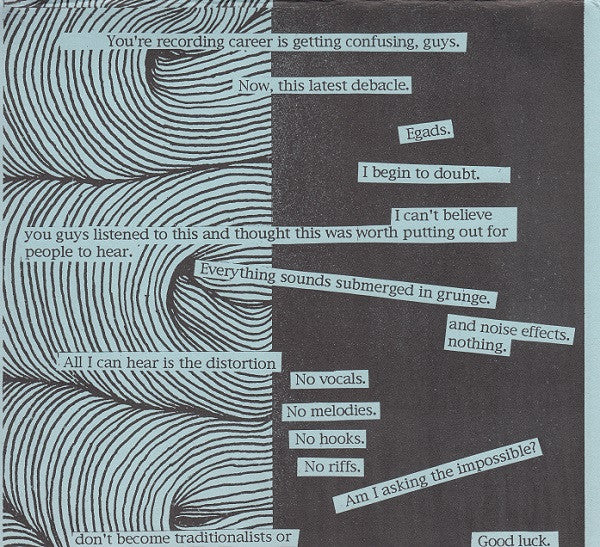 You're recording career is getting confusing, guys.
Now, this latest debacle.
Egads.
I begin to doubt.
I can't believe
you guys listened to this and thought this was worth putting out for
people to hear.
Everything sounds submerged in grunge.
and noise effects.
nothing.
All I can hear is the distortion
No vocals.
No melodies.
No hooks.
No riffs.
Am I asking the impossible?
don't become traditionalists or
Good luck.